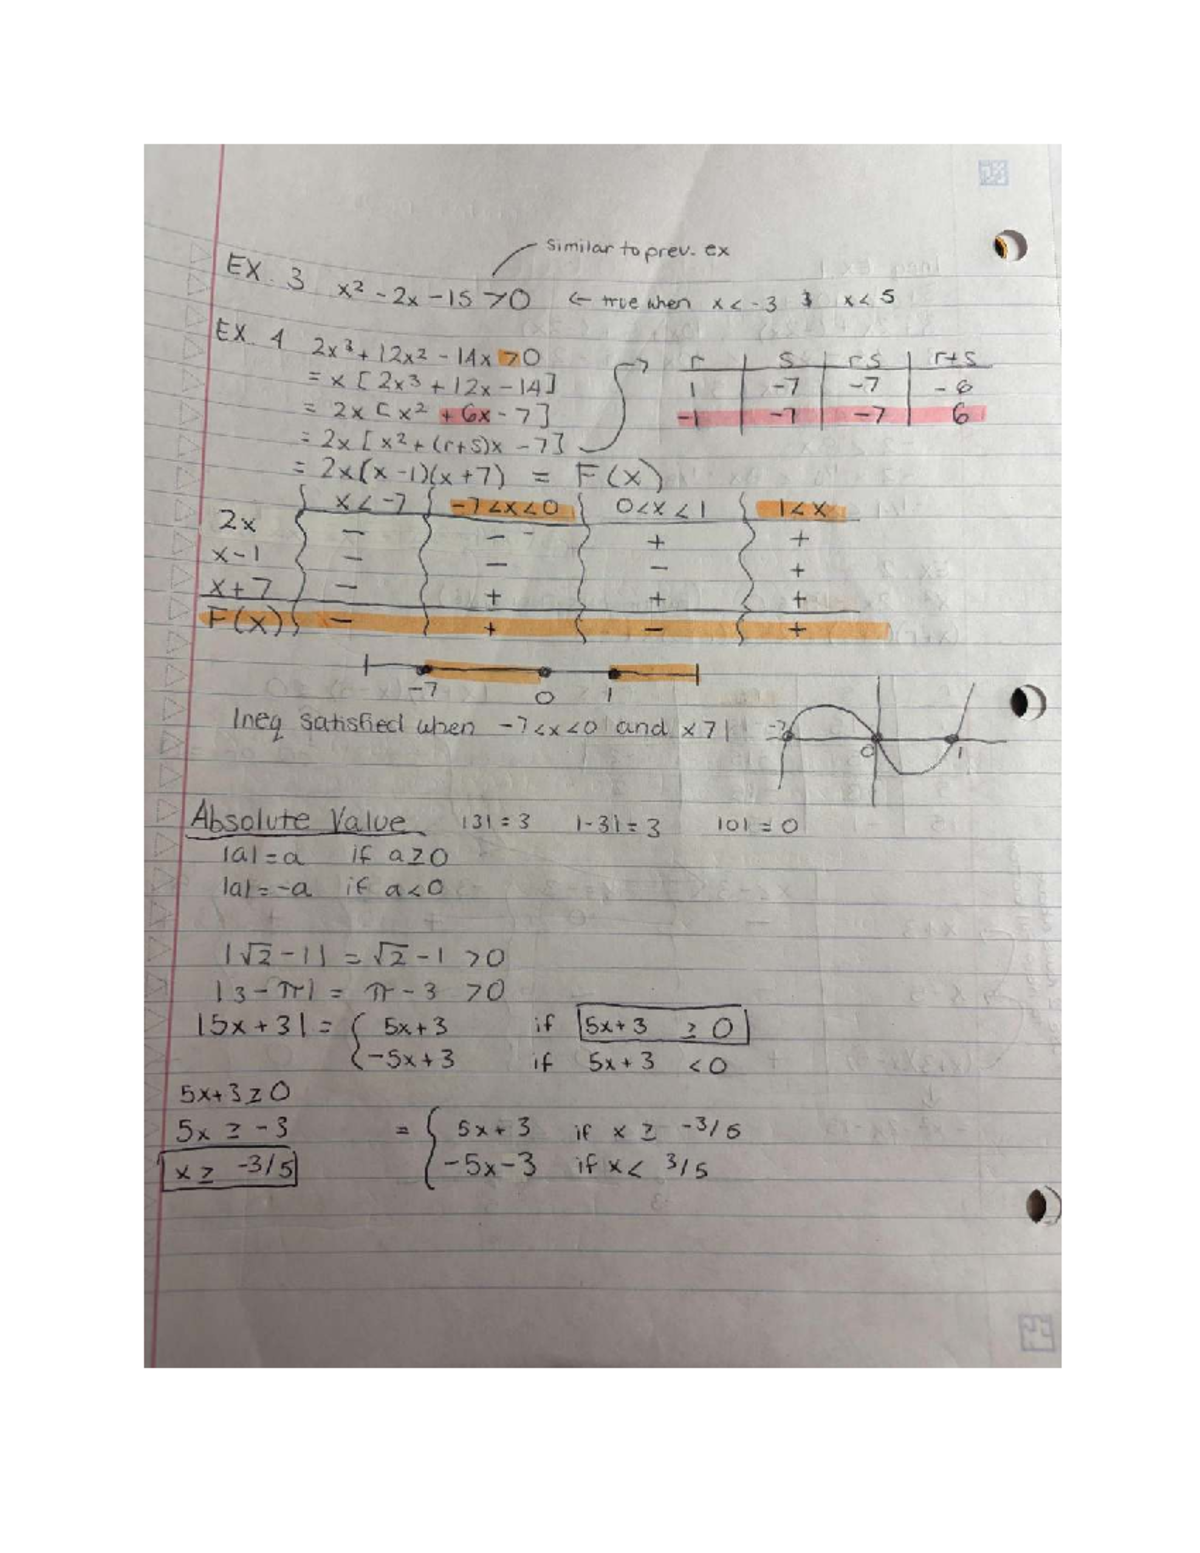 similar to prev. ex
EX. 3 x² - 2x - 15 > 0 ← true when x < -3 & x < 5
EX. 4 2x³ + 12x² - 14x > 0
= x [2x³ + 12x - 14]
= 2x [x² + 6x - 7]
= 2x [x² + (r+s)x - 7]
= 2x(x - 1)(x + 7) = F(x)
r | s | rs | r+s
1 | -7 | -7 | -6
-1 | -7 | -7 | 6
x < -7 | -7 < x < 0 | 0 < x < 1 | 1 < x
2x - - - + +
x-1 - - - +
x+7 - + + +
F(x) - + - +
-7 0 1
Ineq satisfied when -7 < x < 0 and x > 1
-7 0 1
Absolute Value |3| = 3 |-3| = 3 |0| = 0
|a| = a if a ≥ 0
|a| = -a if a < 0
|√2 - 1| = √2 - 1 > 0
|3 - π| = π - 3 > 0
|5x + 3| = { 5x + 3 if 5x + 3 ≥ 0
{ -5x + 3 if 5x + 3 < 0
5x + 3 ≥ 0
5x ≥ -3
x ≥ -3/5
= { 5x + 3 if x ≥ -3/5
{ -5x - 3 if x < 3/5